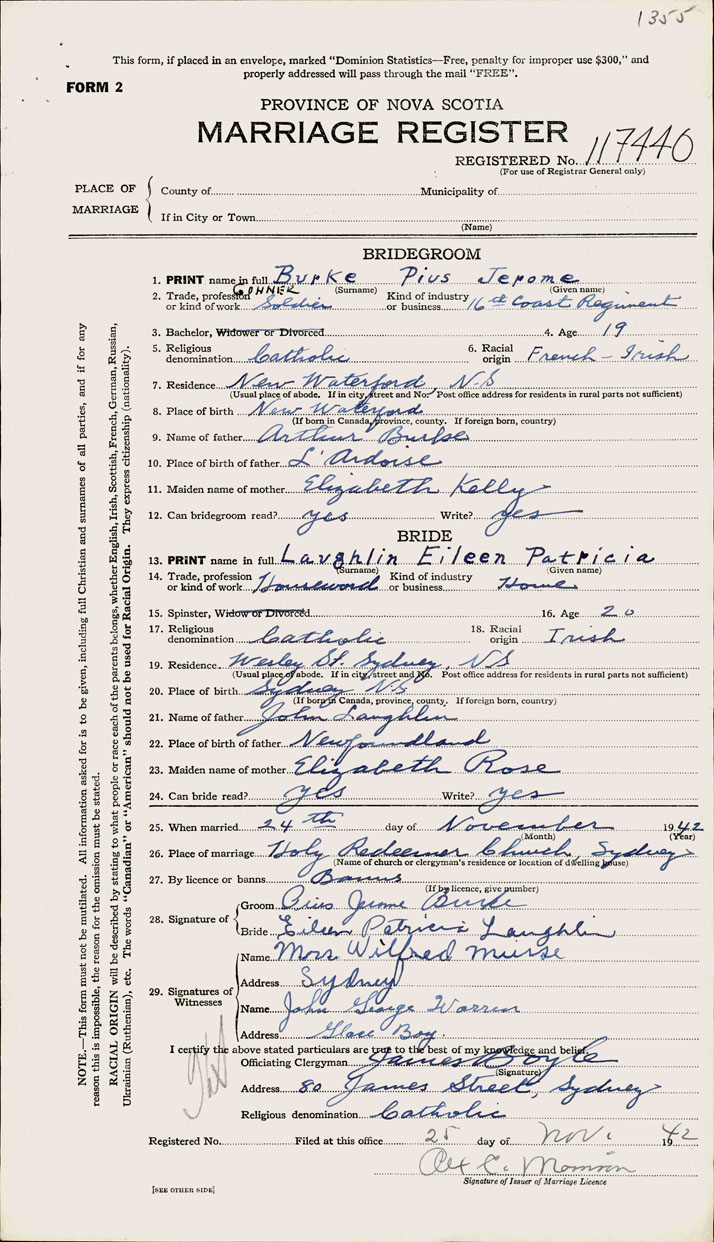 1355
This form, if placed in an envelope, marked "Dominion Statistics—Free, penalty for improper use $300," and
properly addressed will pass through the mail "FREE".
FORM 2
PROVINCE OF NOVA SCOTIA
MARRIAGE REGISTER
REGISTERED No. 117440
(For use of Registrar General only)
PLACE OF MARRIAGE
County of Municipality of
If in City or Town
(Name)
BRIDEGROOM
1. PRINT name in full Burke Pius Jerome
(Surname) (Given name)
GUNNER
2. Trade, profession or kind of work Soldier Kind of industry or business 16th Coast Regiment
3. Bachelor, Widower or Divorced 4. Age 19
5. Religious denomination Catholic 6. Racial origin French - Irish
7. Residence New Waterford, N-S
(Usual place of abode. If in city, street and No. Post office address for residents in rural parts not sufficient)
8. Place of birth New Waterford
(If born in Canada, province, county. If foreign born, country)
9. Name of father Arthur Burke
10. Place of birth of father L'Ardoise
11. Maiden name of mother Elizabeth Kelly
12. Can bridegroom read? yes Write? yes
BRIDE
13. PRINT name in full Laughlin Eileen Patricia
(Surname) (Given name)
14. Trade, profession or kind of work Kind of industry or business Home
15. Spinster, Widow or Divorced 16. Age 20
17. Religious denomination Catholic 18. Racial origin Irish
19. Residence Wesley St. Sydney, NS
(Usual place of abode. If in city, street and No. Post office address for residents in rural parts not sufficient)
20. Place of birth Sydney NS
(If born in Canada, province, county. If foreign born, country)
21. Name of father John Laughlin
22. Place of birth of father Newfoundland
23. Maiden name of mother Elizabeth Rose
24. Can bride read? yes Write? yes
25. When married 24th day of November 1942
(Month) (Year)
26. Place of marriage Holy Redeemer Church, Sydney
(Name of church or clergyman's residence or location of dwelling house)
27. By licence or banns Banns
(If by licence, give number)
28. Signature of
Groom Pius Jerome Burke
Bride Eileen Patricia Laughlin
29. Signatures of Witnesses
Name Wilfred
Address Sydney
Name John George Warren
Address Glace Bay.
I certify the above stated particulars are true to the best of my knowledge and belief.
Officiating Clergyman James Boyle
(Signature)
Address 80 James Street, Sydney
Religious denomination Catholic
Registered No. Filed at this office 25 day of Nov. 1942
Signature of Issuer of Marriage Licence
[SEE OTHER SIDE]
NOTE.—This form must not be mutilated. All information asked for is to be given, including full Christian and surnames of all parties, and if for any
reason this is impossible, the reason for the omission must be stated.
RACIAL ORIGIN will be described by stating to what people or race each of the parents belongs, whether English, Irish, Scottish, French, German, Russian,
Ukrainian (Ruthenian), etc. The words "Canadian" or "American" should not be used for Racial Origin. They express citizenship (nationality).